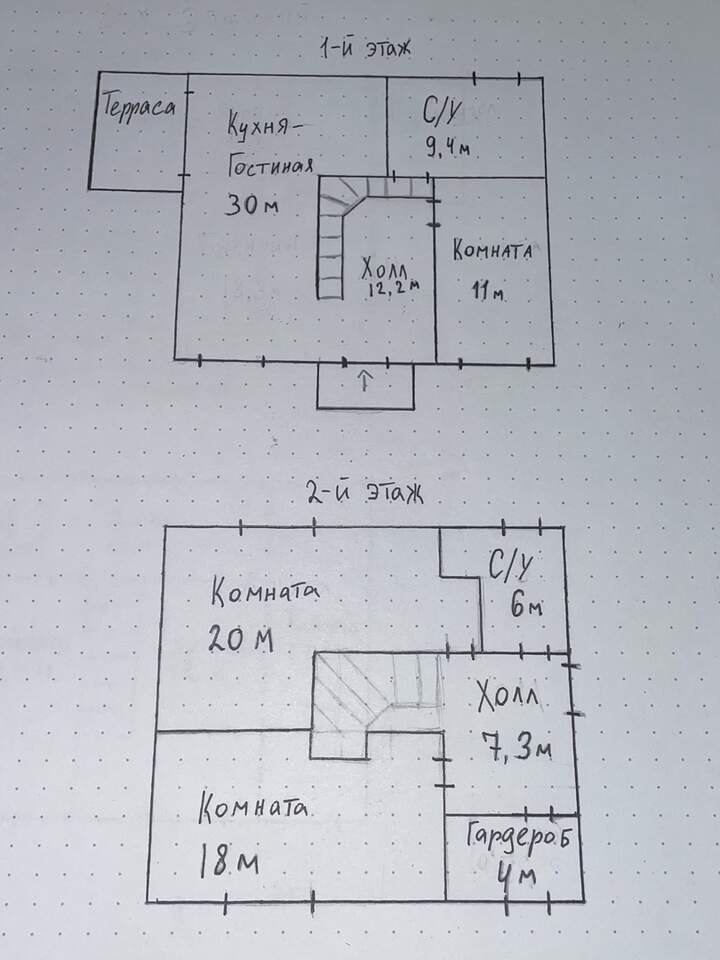 1-й этаж
Терраса
Кухня-
Гостиная
30 м
С/У
9,4 м
Холл
12,2 м
Комната
11 м
2-й этаж
Комната
20 м
С/У
6 м
Холл
7,3 м
Комната
18 м
Гардероб
4 м